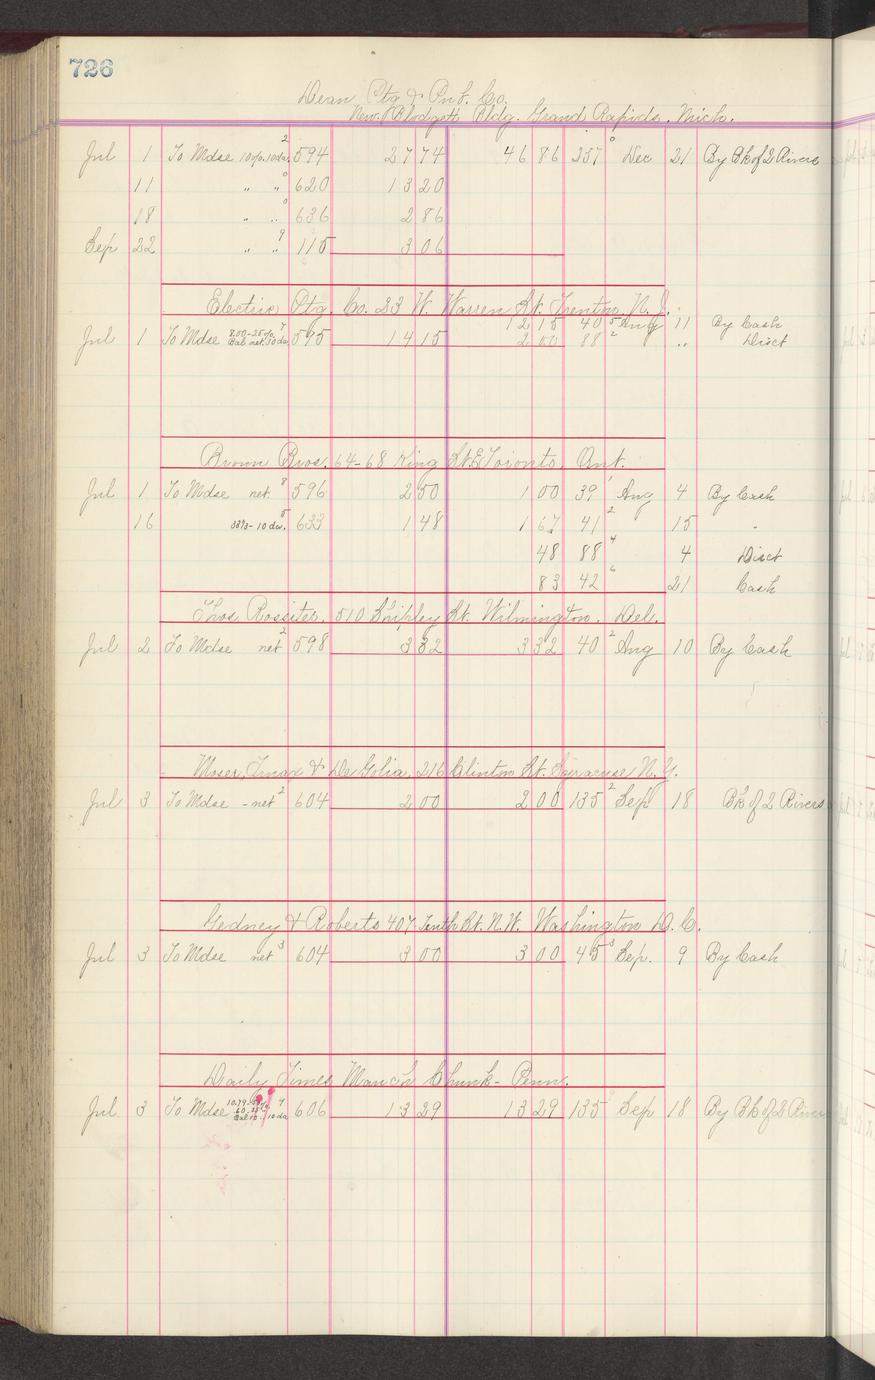 726
Dean Ptg & Pub. Co.
New Blodgett Bldg. Grand Rapids, Mich.
Jul 1 To Mdse 10%. 10 da. 2 594 27 74 46 86 257 0 Dec 21 By Bk of 2 Rivers
11 " " 0 620 13 20
18 " " 0 636 2 86
Sep 22 " " 9 115 3 06
Electric Ptg. Co. 33 W. Warren St. Trenton, N. J.
12 15 40 5 Aug 11 By Cash
Jul 1 To Mdse 8.00-25% Bal net. 30 da. 7 595 14 15 2 00 88 2 " Disct
Brown Bros. 64-68 King St. E. Toronto, Ont.
Jul 1 To Mdse net. 8 596 2 50 1 00 39 1 Aug 4 By Cash
16 10 da. 5 633 1 48 1 67 41 2 15 "
48 88 4 4 Disct
83 42 6 21 Cash
Thos. Rossiter, 510 Shipley St. Wilmington, Del.
Jul 2 To Mdse net 2 598 3 32 3 32 40 2 Aug 10 By Cash
Moser, & De Golia, 216 Clinton St. Syracuse N. Y.
Jul 3 To Mdse - net 2 604 2 00 2 00 135 2 Sep 18 Bk of 2 Rivers
Gedney & Roberts 407 Tenth St. N. W. Washington D. C.
Jul 3 To Mdse net 3 604 3 00 3 00 45 3 Sep. 9 By Cash
Daily Times Mauch Chunk - Penn.
Jul 3 To Mdse 10 da 9 606 13 29 13 29 135 Sep 18 By Bk of 2 Rivers